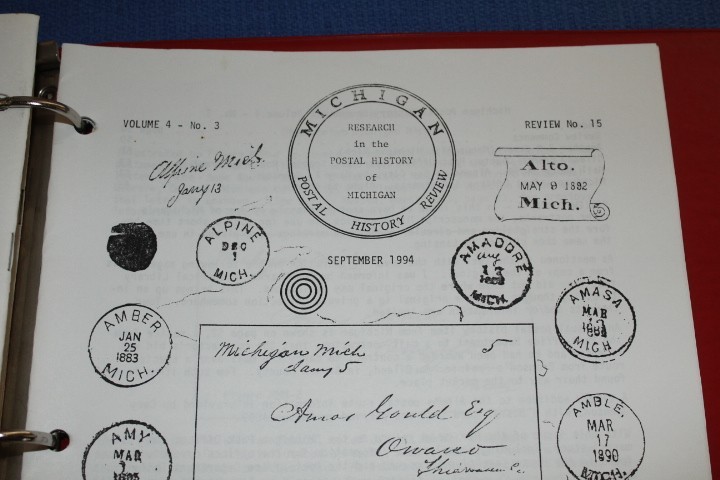 VOLUME 4 - No. 3
REVIEW No. 15
MICHIGAN
POSTAL HISTORY REVIEW
RESEARCH
in the
POSTAL HISTORY
of
MICHIGAN
Alpine Mich.
Jany 13
Alto.
MAY 9 1882
Mich.
ALPINE
DEC
1
MICH.
SEPTEMBER 1994
AMADORE
Aug
13
MICH.
AMBER
JAN
25
1883
MICH.
AMASA
MAR
MICH.
Michigan Mich
Jany 5
5
Amos Gould Esq
Owasso
AMY.
MAR
AMBLE.
MAR
17
1890
MICH.